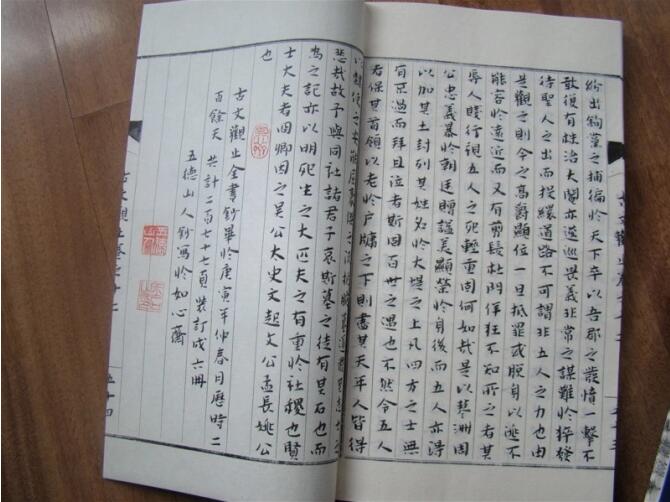 紛出鉤黨之捕徧於天下卒以吾郡之發憤一擊不
敢復有株治大閹亦逡巡畏義非常之謀難於猝發
待聖人之出而投繯道路不可謂非五人之力也由
是觀之則今之高爵顯位一旦抵罪或脫身以逃不
能容於遠近而又有剪髮杜門佯狂不知所之者其
辱人賤行視五人之死輕重固何如哉是以蓼洲周
公忠義暴於朝廷贈諡美顯榮於身後而五人亦得
以加其土封列其姓名於大堤之上凡四方之士無
有不過而拜且泣者斯固百世之遇也不然令五人
者保其首領以老於戶牖之下則盡其天年人皆得
以隸使之安能屈豪傑之流扼腕墓道發其志士之
悲哉故予與同社諸君子哀斯墓之徒有其石也而
為之記亦以明死生之大匹夫之有重於社稷也賢
士大夫者冏卿因之吳公太史文起文公孟長姚公
也
古文觀止全書鈔畢於庚寅年仲春月歷時二
百餘天 共計二百七十七頁裝訂成六冊
五德山人鈔寫於如心齋
古文觀止卷之十二 五十四